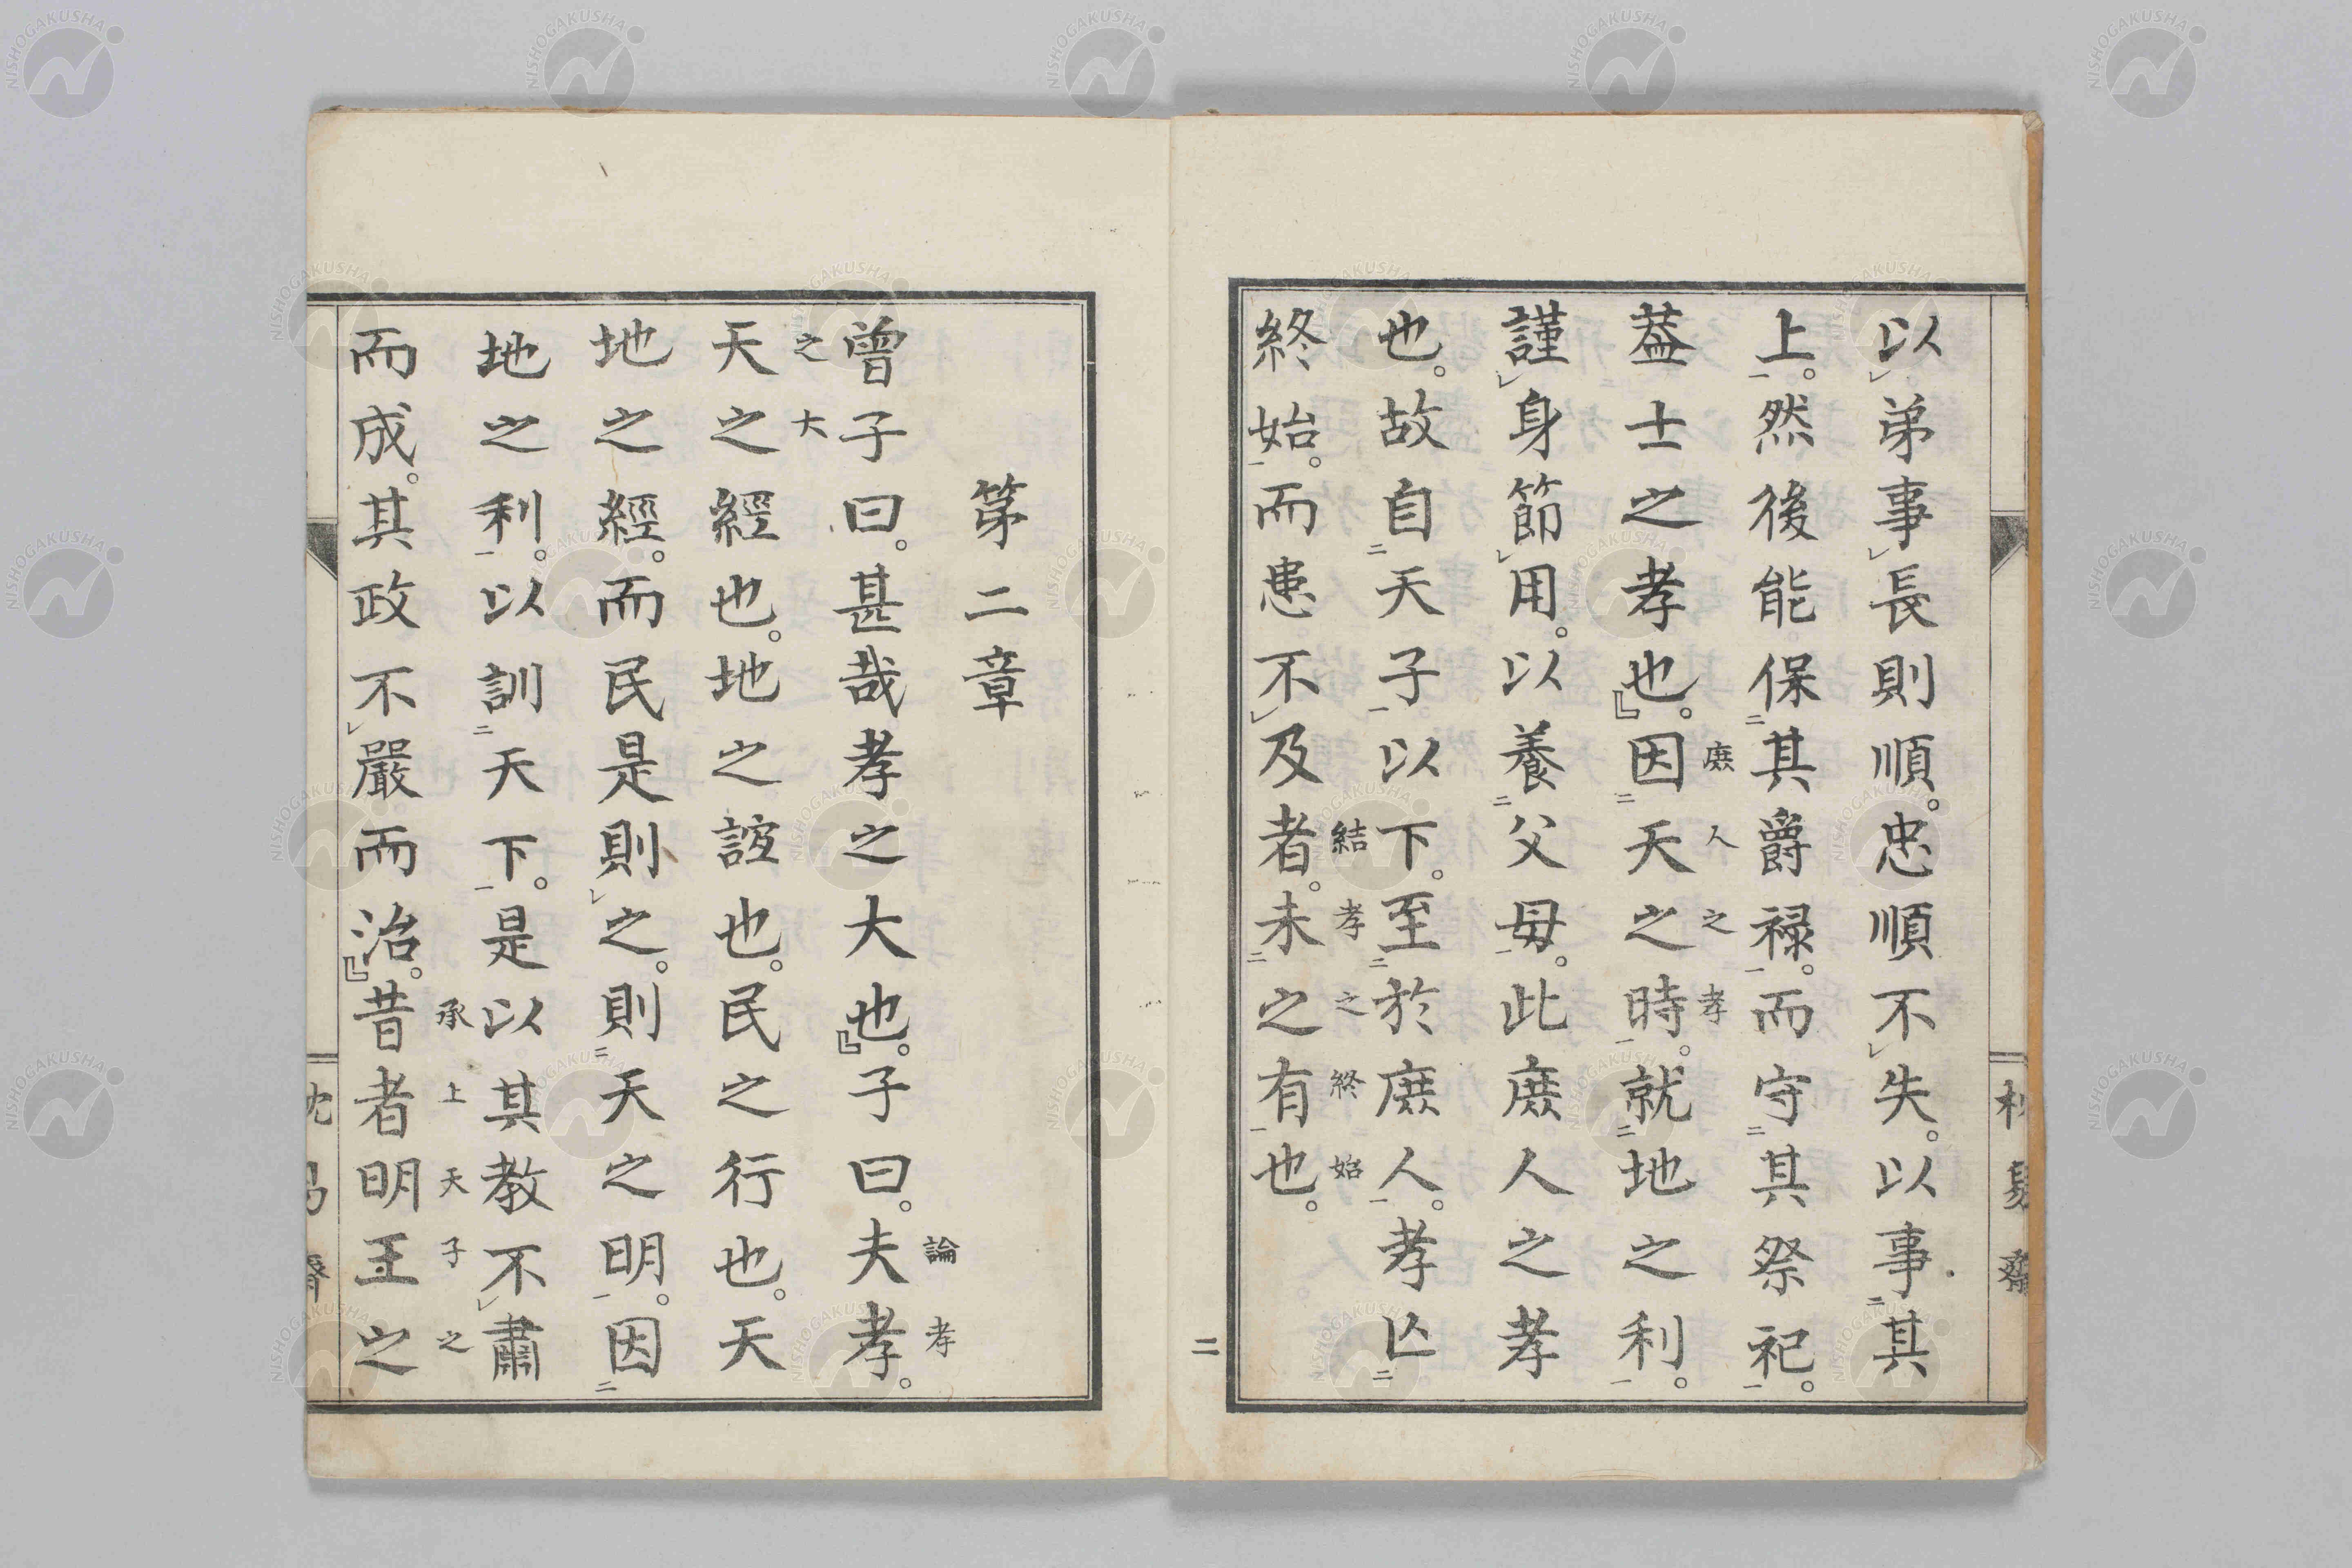 以弟事長則順。忠順不失。以事其
上。然後能保其爵禄。而守其祭祀。
庶人之孝
葢士之孝也。』因天之時。就地之利。
謹身節用。以養父母。此庶人之孝
也。故自天子以下。至於庶人。孝亾
結孝之終始
終始。而患不及者。未之有也。
二
第二章
論孝
曾子曰。甚哉孝之大也。』子曰。夫孝。
之大
天之經也。地之誼也。民之行也。天
地之經。而民是則之。則天之明。因
地之利。以訓天下。是以其教不肅
承上天子之
而成。其政不嚴而治。』昔者明王之
NISHOGAKUSHA